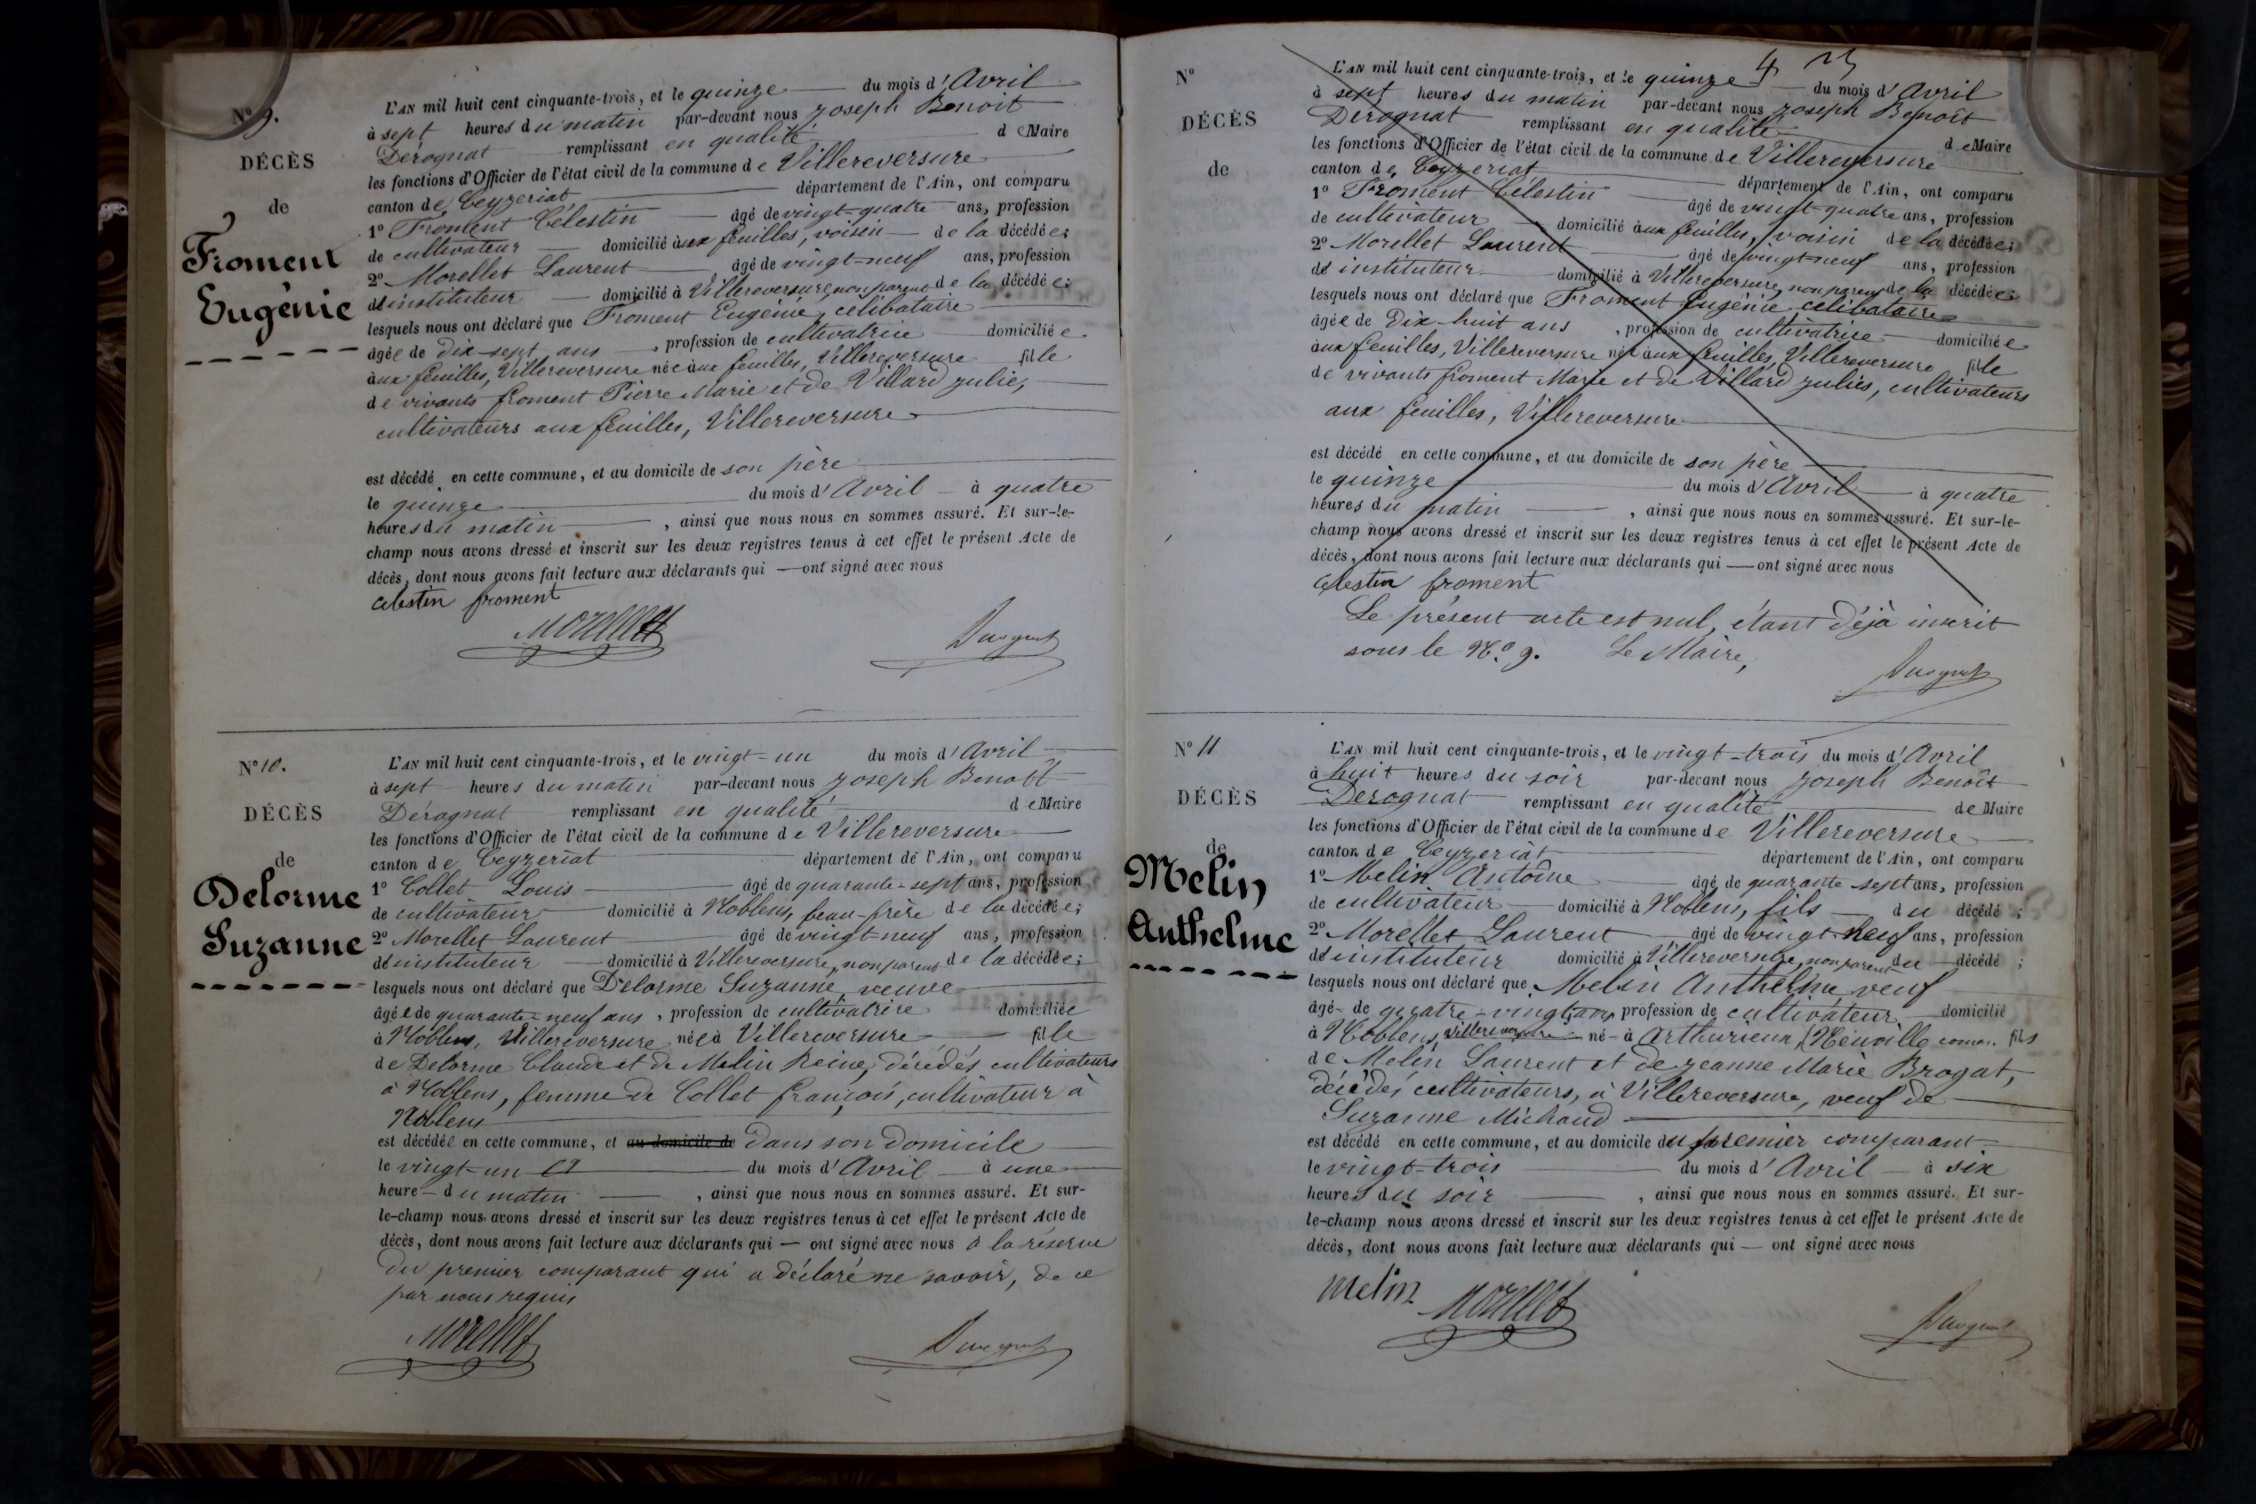 N° 9.
DÉCÈS
de
Froment
Eugénie
L'AN mil huit cent cinquante-trois, et le quinze du mois d'Avril
à sept heures du matin par-devant nous Joseph Benoit
Dérognat remplissant en qualité de Maire
les fonctions d'Officier de l'état civil de la commune de Villereversure
canton de Ceyzeriat département de l'Ain, ont comparu
1° Froment Célestin âgé de vingt-quatre ans, profession
de cultivateur domicilié aux feuilles, voisin de la décédée;
2° Morellet Laurent âgé de vingt-neuf ans, profession
d'instituteur domicilié à Villereversure, non parent de la décédée;
lesquels nous ont déclaré que Froment Eugénie, célibataire
âgée de dix-sept ans, profession de cultivatrice domiciliée
aux feuilles, Villereversure née aux feuilles, Villereversure fille
de vivants froment Pierre Marie et de Villard Julie,
cultivateurs aux feuilles, Villereversure
est décédé en cette commune, et au domicile de son père
le quinze du mois d'Avril à quatre
heures du matin, ainsi que nous nous en sommes assuré. Et sur-le-
champ nous avons dressé et inscrit sur les deux registres tenus à cet effet le présent Acte de
décès, dont nous avons fait lecture aux déclarants qui ont signé avec nous
Celestin froment
Morellet
N° 10.
DÉCÈS
de
Delorme
Suzanne
L'AN mil huit cent cinquante-trois, et le vingt-un du mois d'Avril
à sept heures du matin par-devant nous Joseph Benoît
Dérognat remplissant en qualité de Maire
les fonctions d'Officier de l'état civil de la commune de Villereversure
canton de Ceyzeriat département de l'Ain, ont comparu
1° Collet Louis âgé de quarante-sept ans, profession
de cultivateur domicilié à Noblens, beau-frère de la décédée;
2° Morellet Laurent âgé de vingt-neuf ans, profession
d'instituteur domicilié à Villereversure, non parent de la décédée;
lesquels nous ont déclaré que Delorme Suzanne, veuve
âgée de quarante-neuf ans, profession de cultivatrice domiciliée
à Noblens, Villereversure née à Villereversure fille
de Delorme Claude et de Melin Reine, décédés cultivateurs
à Noblens, femme de Collet françois, cultivateur à
Noblens
est décédée en cette commune, et au domicile de dans son domicile
le vingt-un du mois d'Avril à une
heure du matin, ainsi que nous nous en sommes assuré. Et sur-
le-champ nous avons dressé et inscrit sur les deux registres tenus à cet effet le présent Acte de
décès, dont nous avons fait lecture aux déclarants qui ont signé avec nous à la réserve
du premier comparant qui a déclaré ne savoir, de ce
par nous requis
Morellet
N°
DÉCÈS
de
L'AN mil huit cent cinquante-trois, et le quinze du mois d'Avril
à sept heures du matin par-devant nous Joseph Benoît
Dérognat remplissant en qualité de Maire
les fonctions d'Officier de l'état civil de la commune de Villereversure
canton de Ceyzeriat département de l'Ain, ont comparu
1° Froment Célestin âgé de vingt-quatre ans, profession
de cultivateur domicilié aux feuilles, voisin de la décédée;
2° Morellet Laurent âgé de vingt-neuf ans, profession
d'instituteur domicilié à Villereversure, non parent de la décédée;
lesquels nous ont déclaré que Froment Eugénie célibataire
âgée de Dix-huit ans, profession de cultivatrice domiciliée
aux feuilles, Villereversure née aux feuilles, Villereversure fille
de vivants froment Marie et de Villard Julie, cultivateurs
aux feuilles, Villereversure
est décédé en cette commune, et au domicile de son père
le quinze du mois d'Avril à quatre
heures du matin, ainsi que nous nous en sommes assuré. Et sur-le-
champ nous avons dressé et inscrit sur les deux registres tenus à cet effet le présent Acte de
décès, dont nous avons fait lecture aux déclarants qui ont signé avec nous
Celestin froment
Le présent acte est nul, étant déjà inscrit
sous le N.° 9. Le Maire,
N° 11
DÉCÈS
de
Melin
Anthelme
L'AN mil huit cent cinquante-trois, et le vingt-trois du mois d'Avril
à huit heures du soir par-devant nous Joseph Benoît
Dérognat remplissant en qualité de Maire
les fonctions d'Officier de l'état civil de la commune de Villereversure
canton de Ceyzeriat département de l'Ain, ont comparu
1° Melin Antoine âgé de quarante sept ans, profession
de cultivateur domicilié à Noblens, fils du décédé;
2° Morellet Laurent âgé de vingt-neuf ans, profession
d'instituteur domicilié à Villereversure, non parent du décédé;
lesquels nous ont déclaré que Melin Anthelme veuf
âgé de quatre-vingt ans, profession de cultivateur domicilié
à Noblens, Villereversure né à Arthurieux, fils
de Melin Laurent et de Jeanne Marie Brogat,
décédés cultivateurs, à Villereversure, veuf de
Suzanne Michaud
est décédé en cette commune, et au domicile du premier comparant
le vingt-trois du mois d'Avril à six
heures du soir, ainsi que nous nous en sommes assuré. Et sur-
le-champ nous avons dressé et inscrit sur les deux registres tenus à cet effet le présent Acte de
décès, dont nous avons fait lecture aux déclarants qui ont signé avec nous
Melin
Morellet